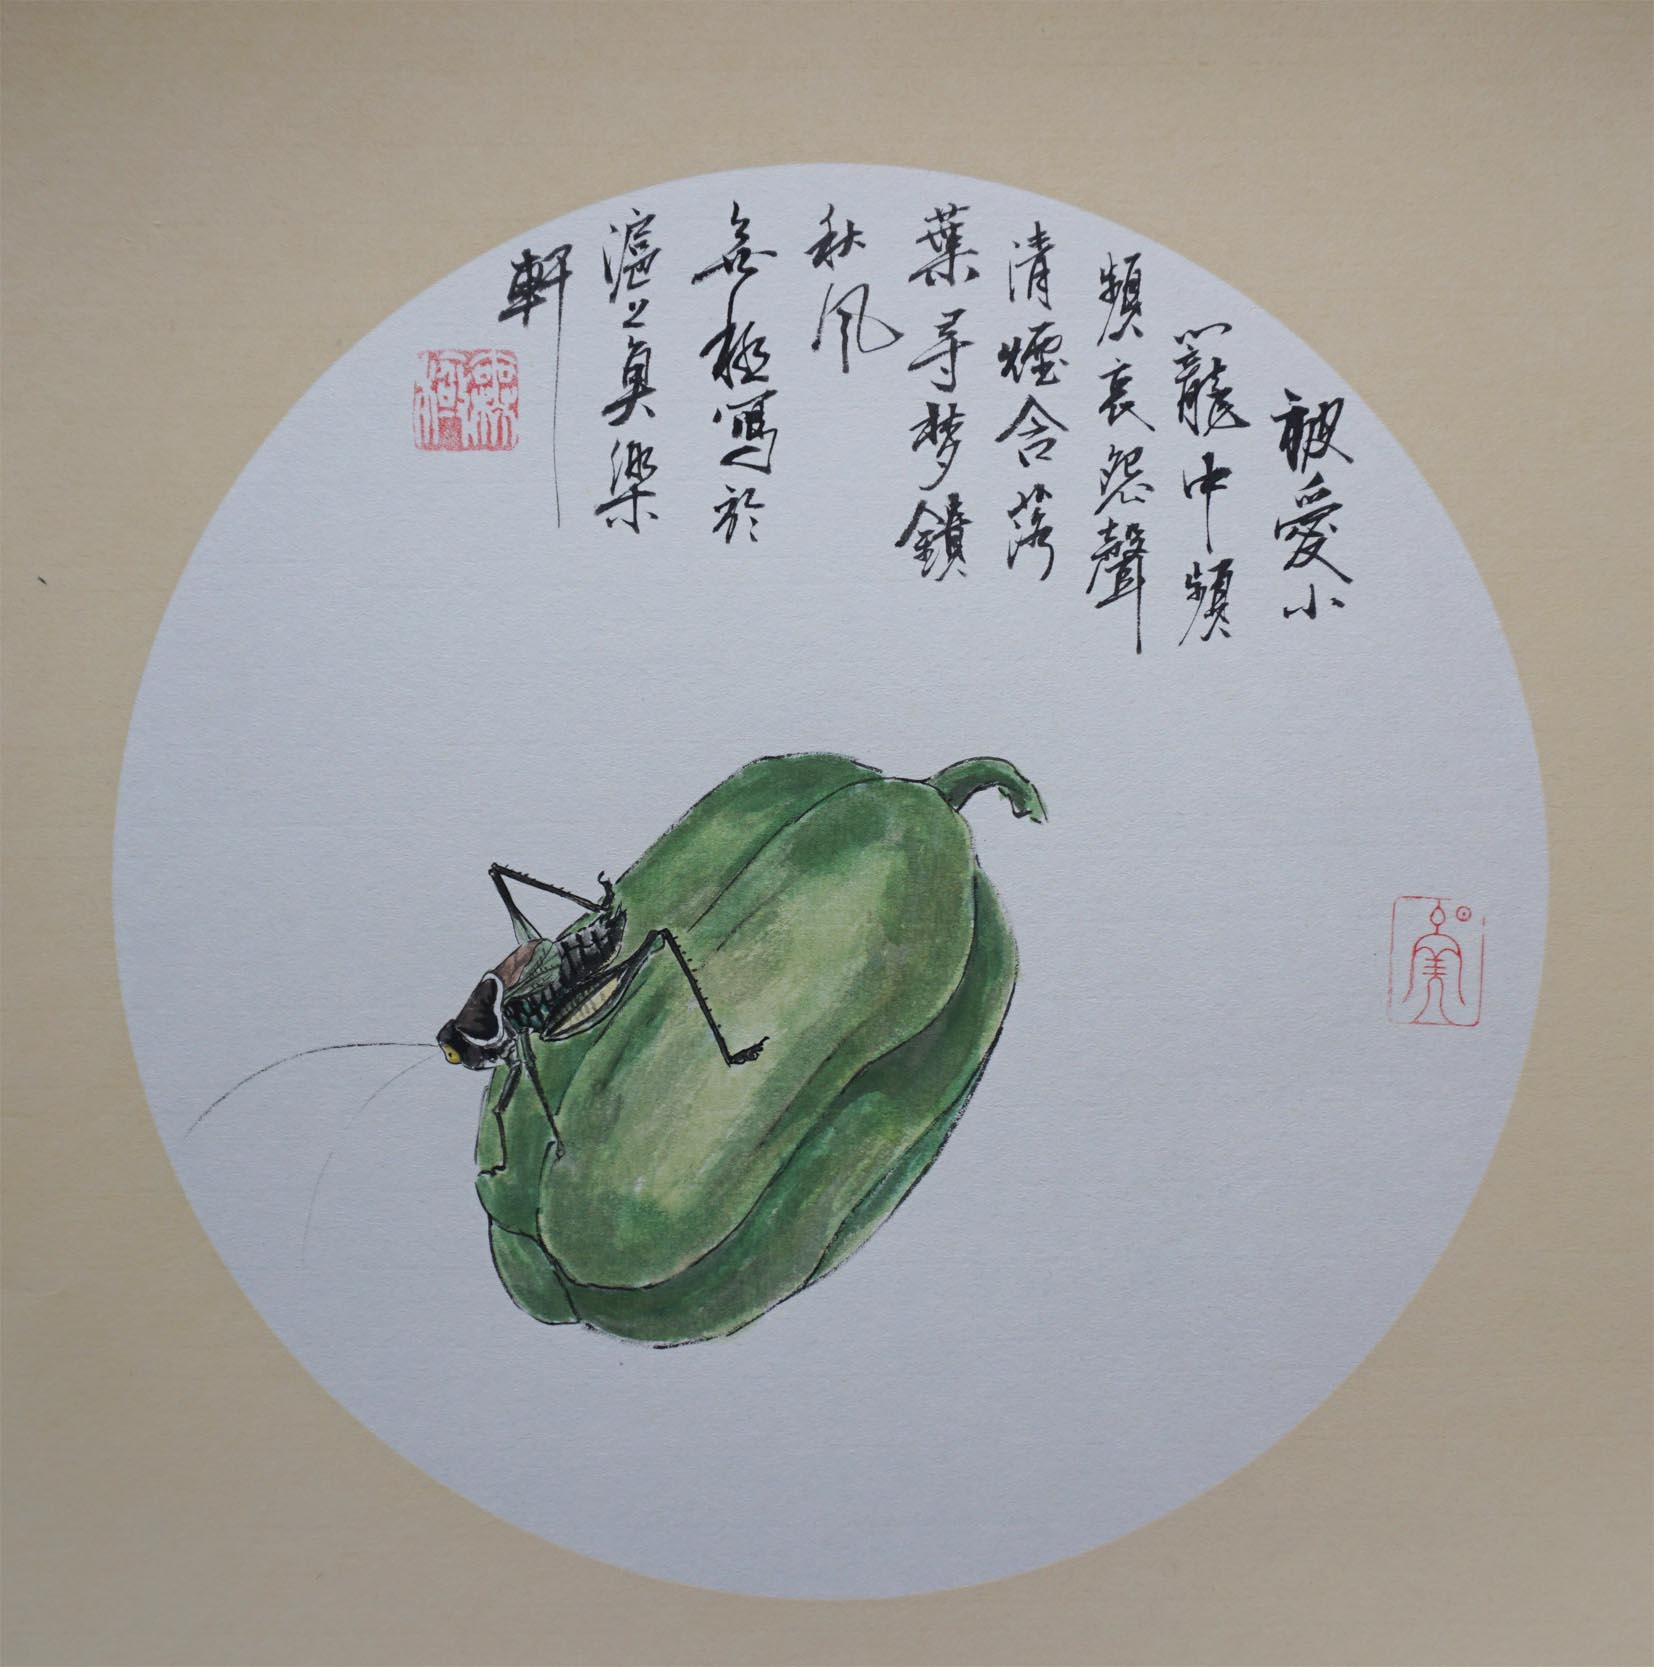 被愛小
籠中頻
頻哀怨聲
清煙含落
葉尋夢鎖
秋風
無極寫於
滬上奠樂
軒